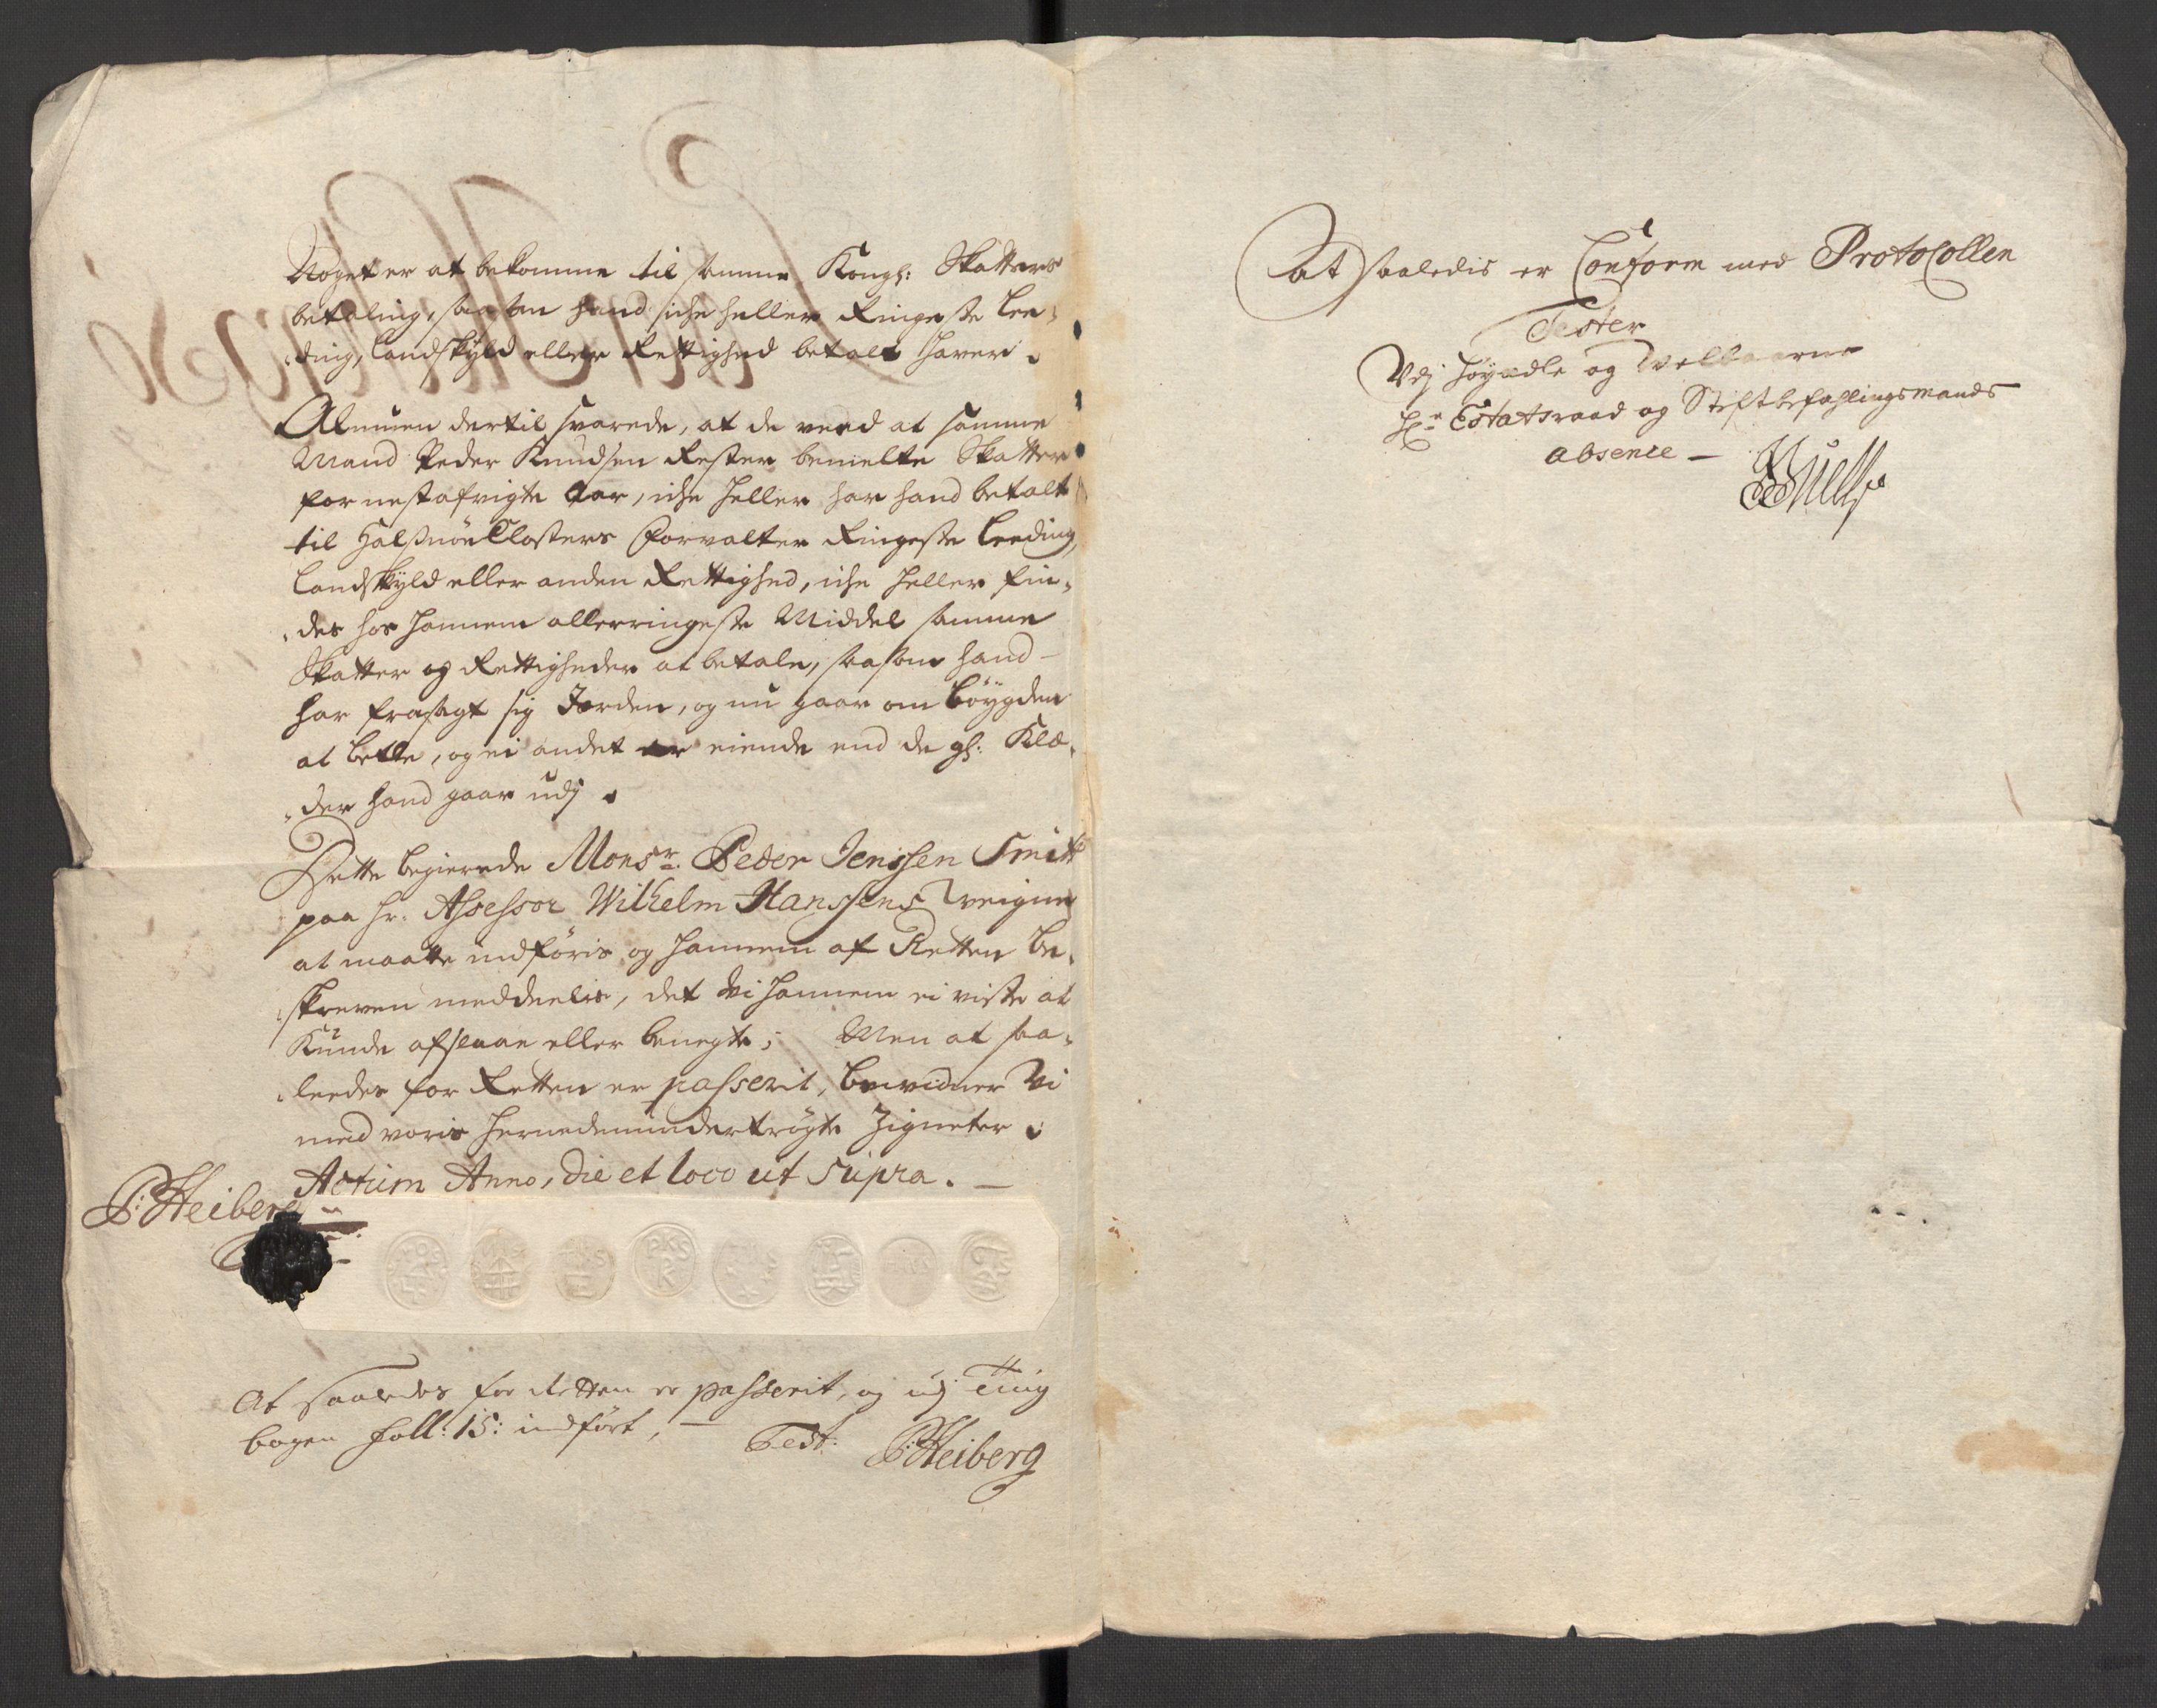 Noget er at bekomme til samme Kongl: Skatters
betaling, saa som hand iche heller Ringeste Lee-
ding, Landskyld eller Rettighed betalt haver.
Almuen dertil svarede, at de veed at samme
Mand Peder Knudsen Rester bemelte Skatter
for nestafvigte Aar, iche heller har hand betalt
til Halsnöe Closters Forvalter Ringeste Leeding,
Landskyld eller anden Rettighed, iche heller fin-
des hos hannem allerringeste Middel samme
Skatter og Rettigheder at betale, saasom hand
har frasagt sig Jorden, og nu gaar om böygden
at betle, og ei andet er eiende end de gl: Klæ-
der hand gaar udj.
Dette begierede Monsr. Peder Jenssen Smitt
paa hr. Assessor Wilhelm Hanssens Weigne
at maatte indföris og hannem af Retten be-
skreven meddeelis, det Wi hannem ei viste at
Kunde afslaae eller benegte; Men at saa-
leedes for Retten er passerit, bevidner Wi
med voris hernedenundertrögte Zigneter.
Actum Anno, die et loco ut supra.
P: Heiberg
PKS
K
At saaledes for Retten er passerit, og udj Ting
bogen foll: 15: indfört, Test: P: Heiberg
At saaledis er Conform med Protocollen
Tester
Udj Höyædle og Welbaarne
Hr. Estatsraad og Stiftbefahlingsmands
absence